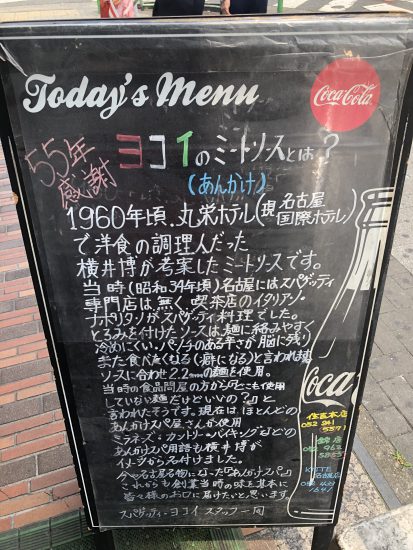 Today's Menu
Coca-Cola
55年
感謝
ヨコイのミートソースとは?
(あんかけ)
1960年頃.丸栄ホテル(現名古屋国際ホテル)
で洋食の調理人だった
横井博が考案したミートソースです。
当時(昭和34年頃)名古屋にはスパゲッティ
専門店は無く、喫茶店のイタリアン・
ナポリタンがスパゲッティ料理でした。
とろみを付けたソースは麺に絡みやすく
冷めにくい.パンチのある辛さが脳に残り
また食べたくなる(癖になる)と言われます
ソースに合わせ2.2mmの麺を使用。
当時の食品問屋の方から『どこも使用
していない麺だけどいいの?』と
言われたそうです。現在はほとんどの
あんかけスパ屋さんが使用
ミラネーズ・カントリー・バイキングなどの
あんかけスパ用語も横井博が
イメージから名付けました。
今や名古屋名物になった『あんかけスパ』
これからも創業当時の味を基本に
皆々様のお口に届けたいと思います。
スパゲッティ・ヨコイ スタッフ一同
Coca
住吉本店
052 241
5571
錦店
052 962
5855
KITTE
名古屋店